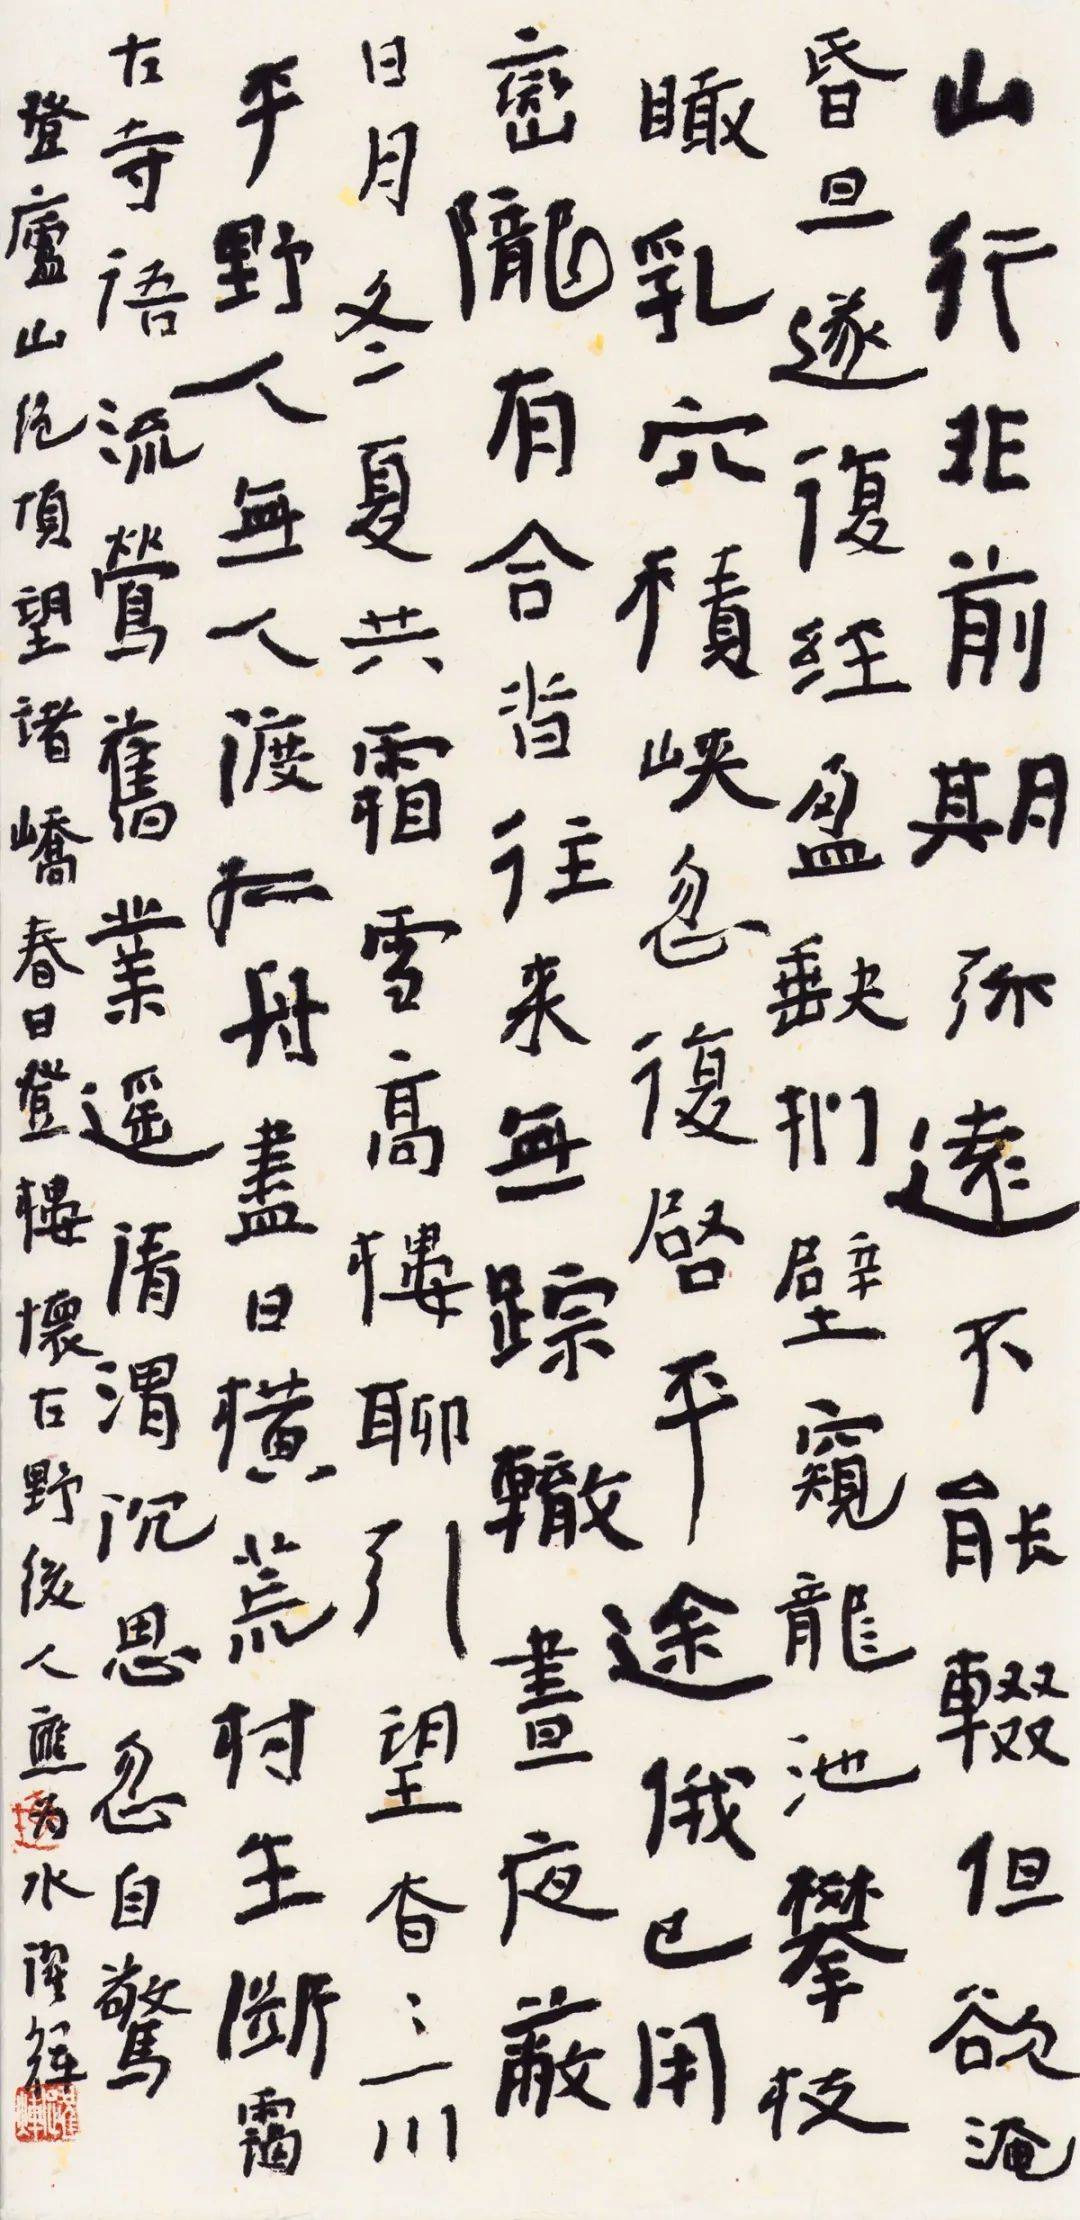 山行非前期弥遠不能輟但欲淹
昏旦遂復経盈缺捫壁窺龍池攀枝
瞰乳穴積峽忽復啓平途俄已閉
巒隴有合沓往来無踪轍晝夜蔽
日月冬夏共霜雪高樓聊引望杳々一川
平野人無人渡孤舟盡日橫荒村生斷靄
古寺語流鶯舊業遥清渭沉思忽自驚
登廬山绝頂望諸嶠春日登樓懷古野後人應為水